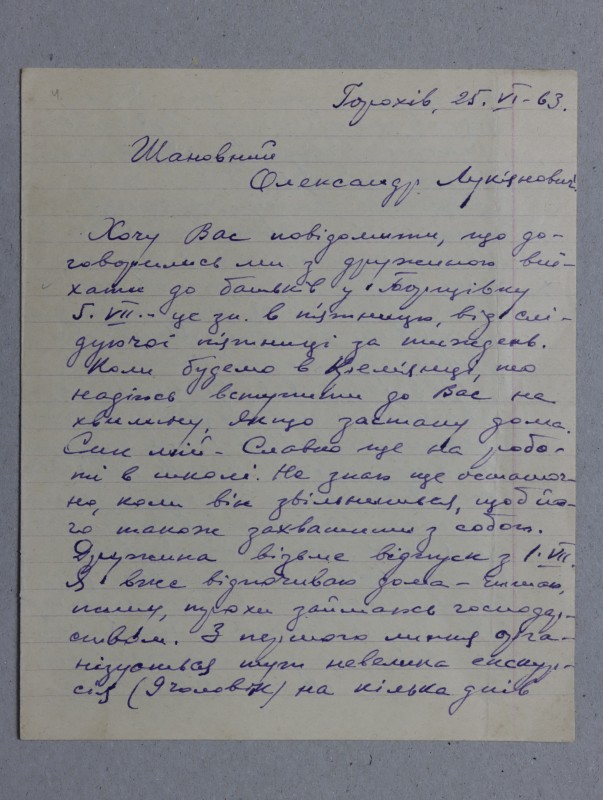 Горохів, 25. VI-63.
Шановний
Олександр Лук'янович
Хочу Вас повідомити, що до-
говорились ми з дружиною виї-
хати до батьків у Борщівку
5. VII. - це зн. в п'ятницю, від слі-
дуючої п'ятниці за тиждень.
Коли будемо в Кремянці, то
надіюсь вступити до Вас на
хвилину, якщо застану дома.
Син мій - Славко ще на робо-
ті в школі. Не знаю ще остаточ-
но, коли він звільниться, щоб йо-
го також захватити з собою.
Дружина візьме відпуск з 1. VII.
Я вже відпочиваю дома - читаю,
пишу, трохи займаюсь господар-
ством. З першого липня орга-
нізується тут невелика екскур-
сія (9 чоловік) на кілька днів